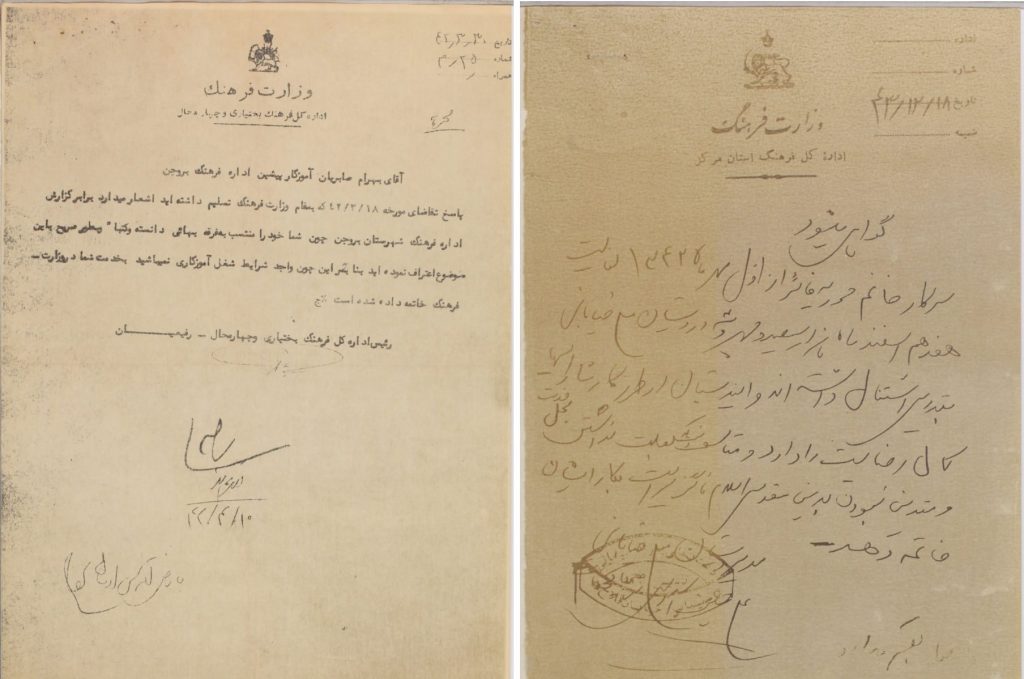 تاریخ ۴۲٫۳٫۳۰
شماره ۲۵٫م
همراه
وزارت فرهنگ
اداره کل فرهنگ بختیاری و چهارمحال
محرمانه
آقای بهرام صابریان آموزگار پیشین اداره فرهنگ بروجن
پاسخ تقاضای مورخه ۴۲/۳/۱۸ که بمقام وزارت فرهنگ تسلیم داشته اید اشعار میدارد برابر گزارش
اداره فرهنگ شهرستان بروجن چون شما خود را منتسب بفرقه بهائی دانسته وکتبا" بطور صریح باین
موضوع اعتراف نموده اید بنا بقراین چون واجد شرایط شغل آموزگاری نمیباشید بخدمت شما در وزارت ــ
فرهنگ خاتمه داده شده است
رئیس اداره کل فرهنگ بختیاری وچهارمحال ــ رفیعیـــــان
۴۲/۴/۱۰
اداره
شماره
تاریخ ۴۳/۱۲/۱۸
ضمیمه
وزارت فرهنگ
ادارهٔ کل فرهنگ استان مرکز
گواهی میشود
سرکار خانم حوریه فائز از اول مهر ماه ۱۳۴۲ لغایت
هفدهم اسفند ماه هزار و سیصد و چهل و سه در دبستان ملی خیابانی
بتدریس اشتغال داشته اند و این دبستان از طرز کار مشارالیها
کمال رضایت را دارد و متاسفانه بعلت نداشتن
و متدین نبودن بدین مقدس اسلام ناگزیر است بکار ایشان
خاتمه دهد ــ
مدیر دبستان ملی خیابانی